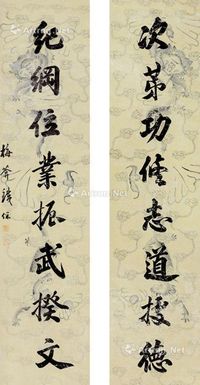 次第功修志道據德
紀綱位業振武揆文
梅菴鐵保